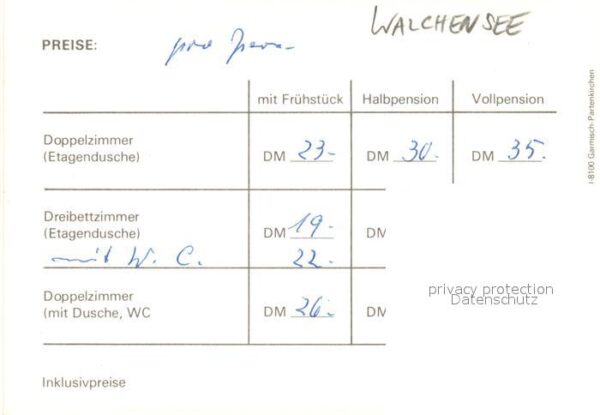 WALCHENSEE
PREISE: pro Pers.
mit Frühstück Halbpension Vollpension
Doppelzimmer
(Etagendusche) DM 23.- DM 30.- DM 35.
Dreibettzimmer
(Etagendusche) DM 19.- DM
mit W. C. 22.-
Doppelzimmer
(mit Dusche, WC DM 26.- DM
Inklusivpreise
I-8100 Garmisch-Partenkirchen
privacy protection
Datenschutz